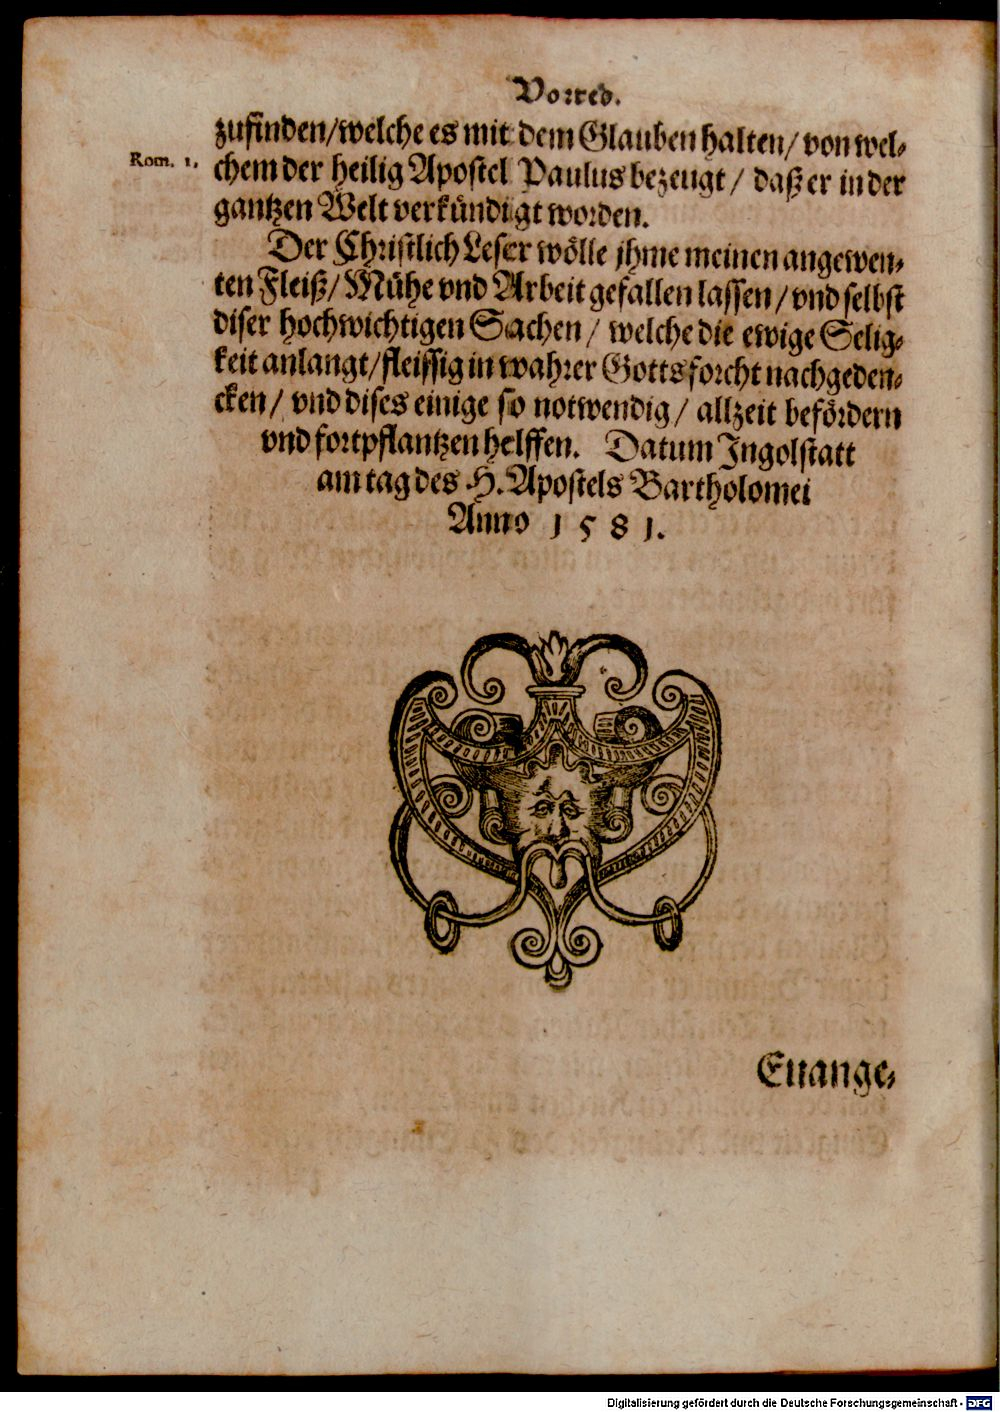 Vorred.
zufinden/welche es mit dem Glauben halten/ von wel-
Rom. 1.
chem der heilig Apostel Paulus bezeugt/ daß er in der
gantzen Welt verkündigt worden.
Der Christlich Leser wölle jhme meinen angewen-
ten Fleiß/ Mühe vnd Arbeit gefallen lassen/ vnd selbst
diser hochwichtigen Sachen/ welche die ewige Selig-
keit anlangt/fleissig in wahrer Gottsforcht nachgeden-
cken/ vnd dises einige so notwendig/ allzeit befördern
vnd fortpflantzen helffen. Datum Ingolstatt
am tag des H. Apostels Bartholomei
Anno 1581.
Euange-
Digitalisierung gefördert durch die Deutsche Forschungsgemeinschaft - DFG